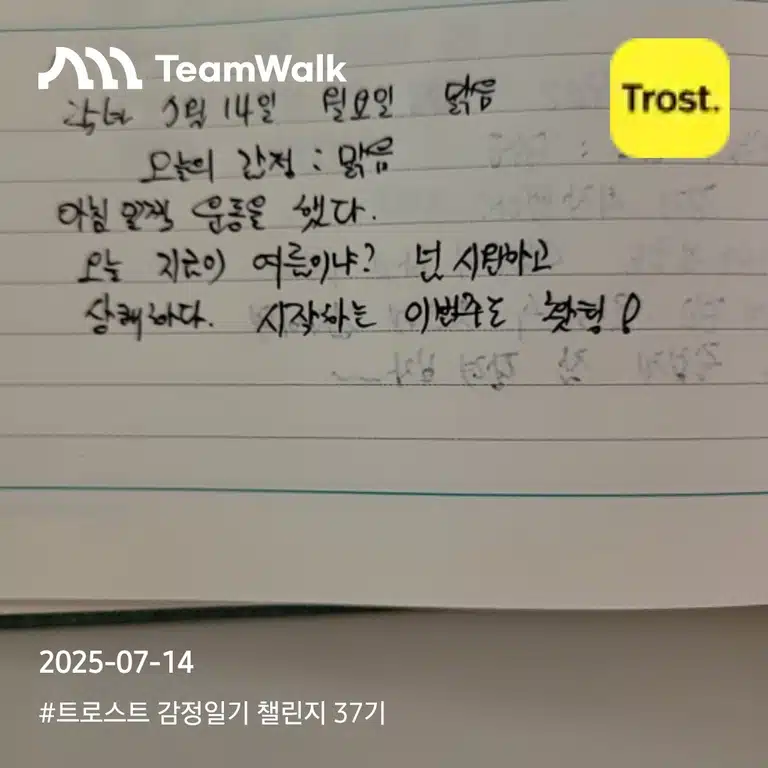 TeamWalk
Trost.
14일 월요일 맑음
오늘의 감정 : 맑음
아침 일찍 운동을 했다.
오늘 지금이 여름이냐? 넘 시원하고
상쾌하다. 시작하는 이번주도 홧팅!
2025-07-14
#트로스트 감정일기 챌린지 37기